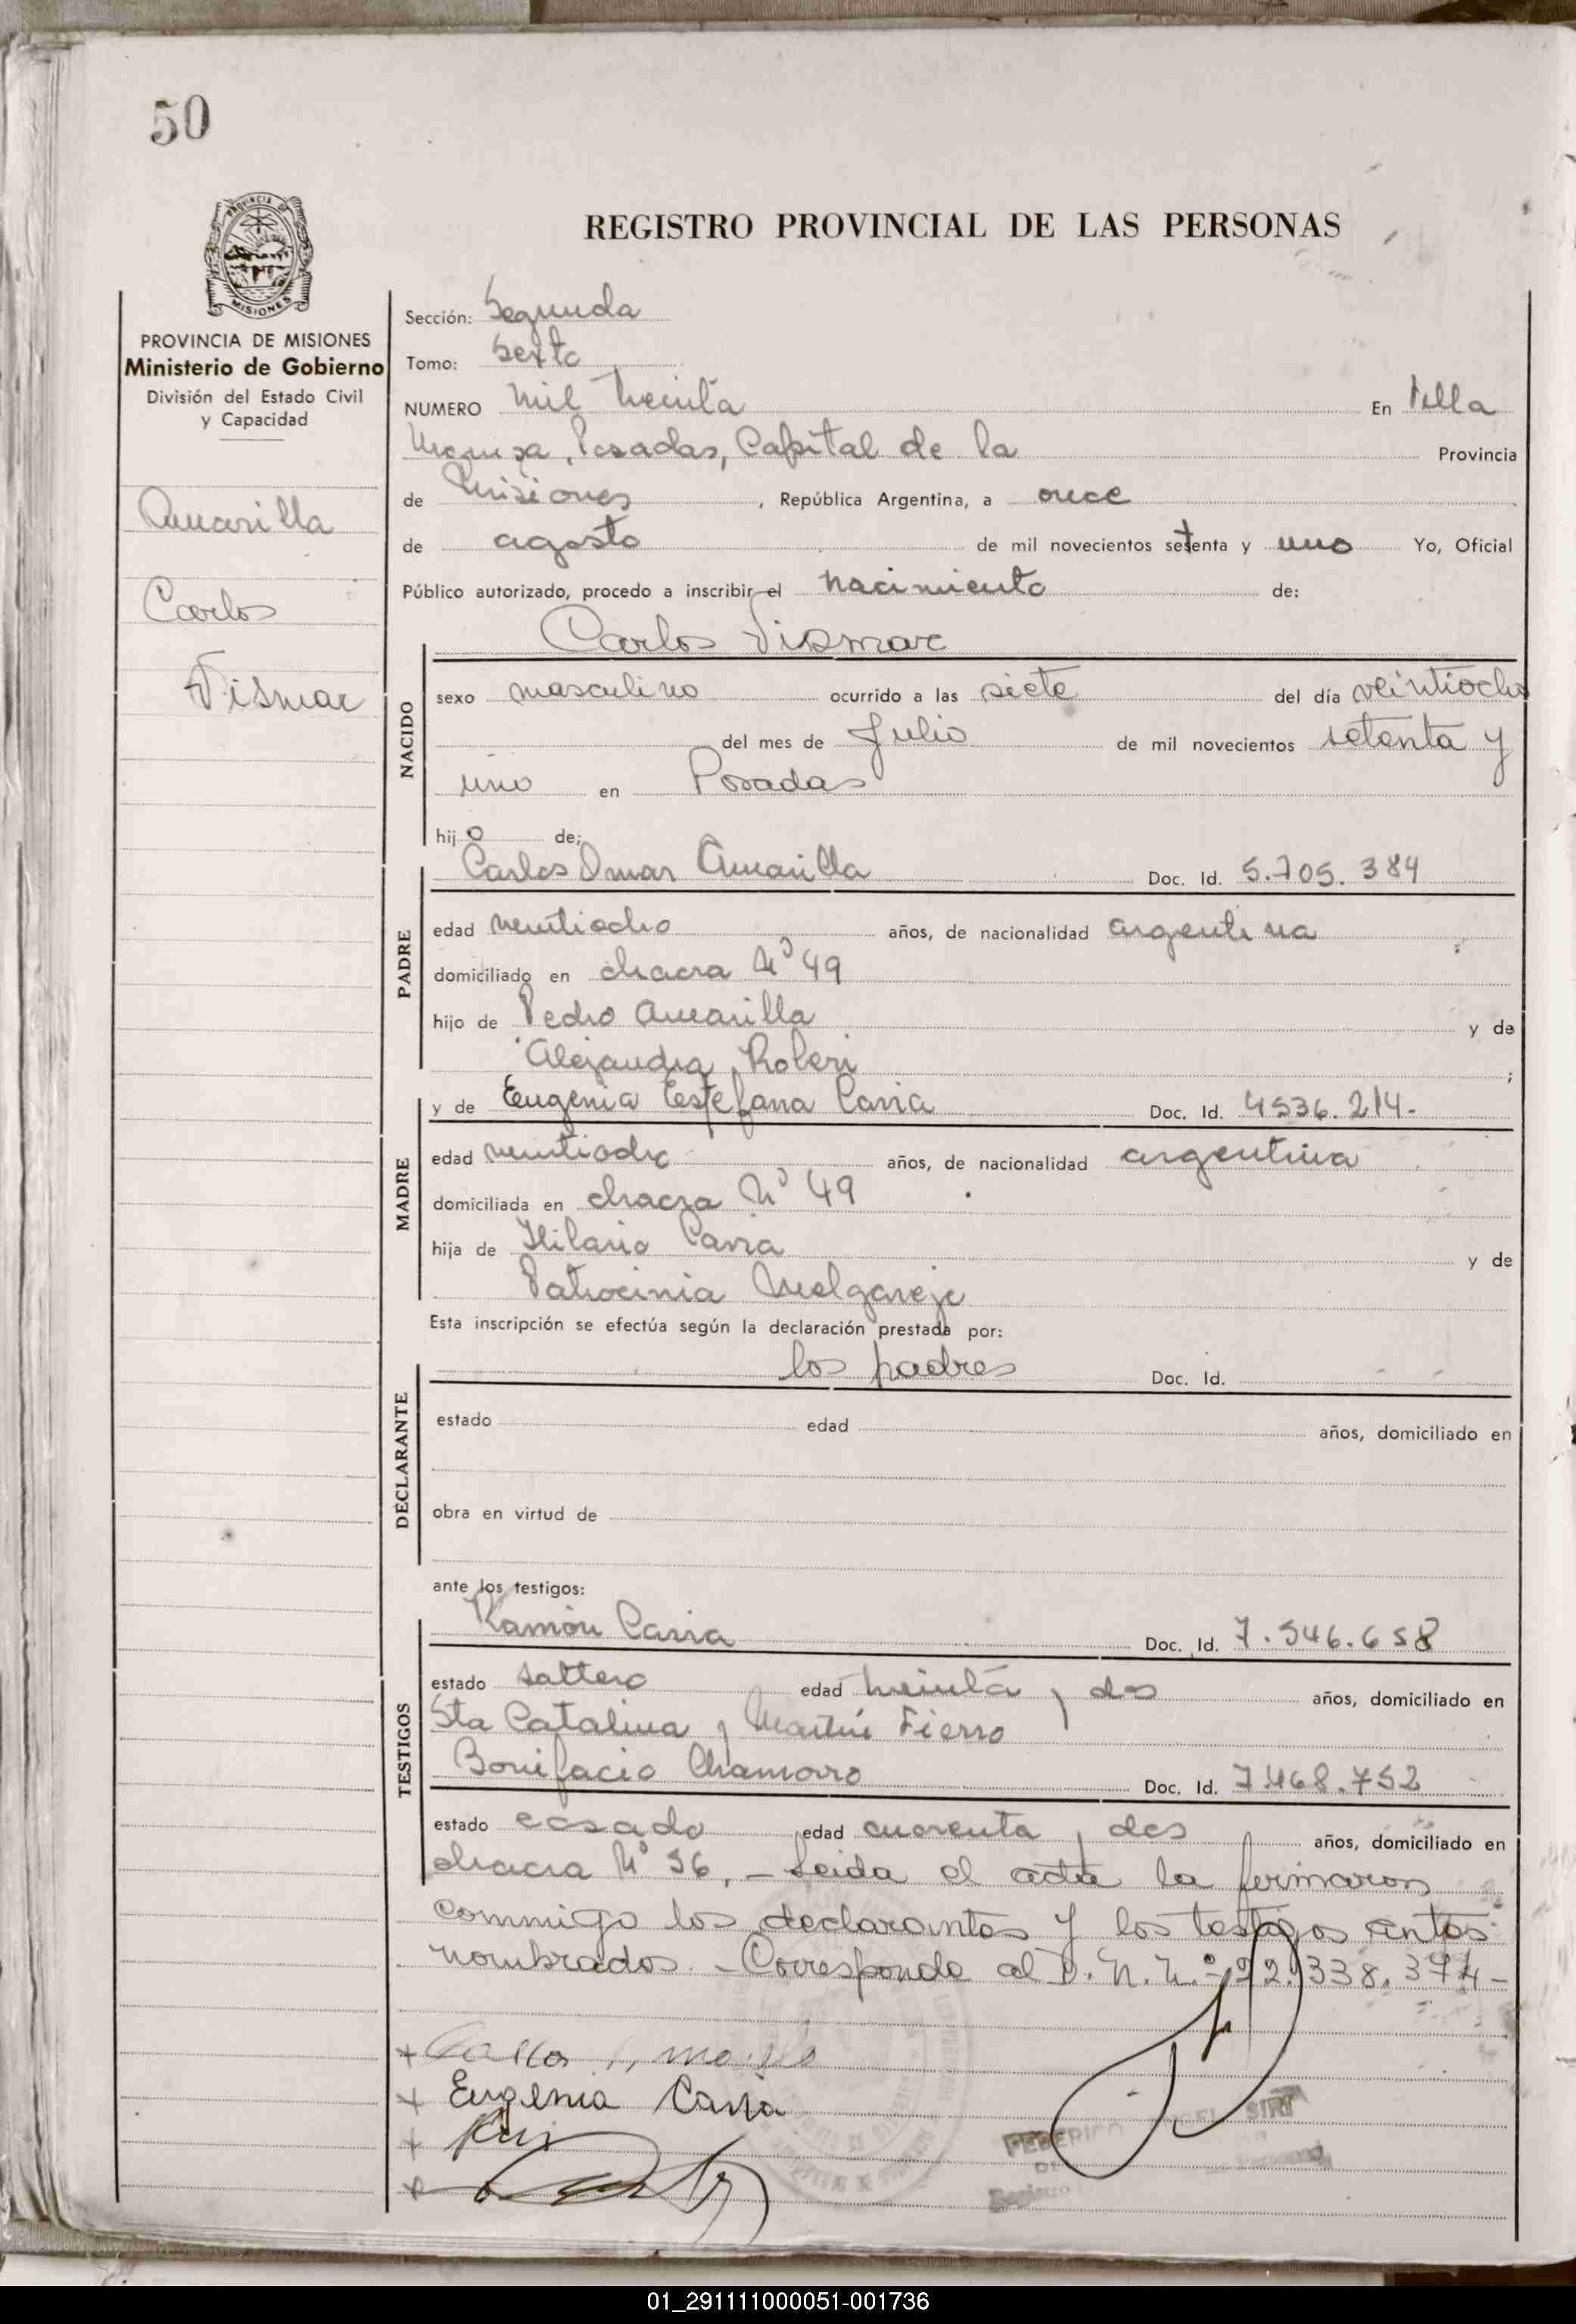 50
PROVINCIA DE
MISIONES
REGISTRO PROVINCIAL DE LAS PERSONAS
PROVINCIA DE MISIONES
Ministerio de Gobierno
División del Estado Civil
y Capacidad
Amarilla
Carlos
Vismar
Sección: Segunda
Tomo: Sexto
NUMERO mil treinta En Villa
Urquiza, Posadas, Capital de la Provincia
de Misiones, República Argentina, a once
de agosto de mil novecientos setenta y uno Yo, Oficial
Público autorizado, procedo a inscribir el nacimiento de:
Carlos Vismar
NACIDO
sexo masculino ocurrido a las siete del día veintiocho
del mes de Julio de mil novecientos setenta y
uno en Posadas
hijo de;
Carlos Omar Amarilla Doc. Id. 5.705.384
PADRE
edad veintiocho años, de nacionalidad argentina
domiciliado en chacra Nº 49
hijo de Pedro Amarilla y de
Alejandra ;
y de Eugenia Estefana Doc. Id. 4536.214-
MADRE
edad veintiocho años, de nacionalidad argentina
domiciliada en chacra Nº 49
hija de Hilario y de
Patrocinia Melgarejo
Esta inscripción se efectúa según la declaración prestada por:
los padres Doc. Id.
DECLARANTE
estado edad años, domiciliado en
obra en virtud de
ante los testigos:
Ramón Doc. Id. 7.546.658
TESTIGOS
estado soltero edad treinta y dos años, domiciliado en
Sta Catalina y Martín Fierro
Bonifacio Chamorro Doc. Id. 7.468.752
estado casado edad cuarenta y dos años, domiciliado en
chacra Nº 56, - Leida el acta la firmaron
conmigo los declarantes y los testigos antes
nombrados. - Corresponde al D.N.N.º 22.338.374-
+
+ Eugenia
+
+
FEDERICO SIRI
Registro
01_291111000051-001736